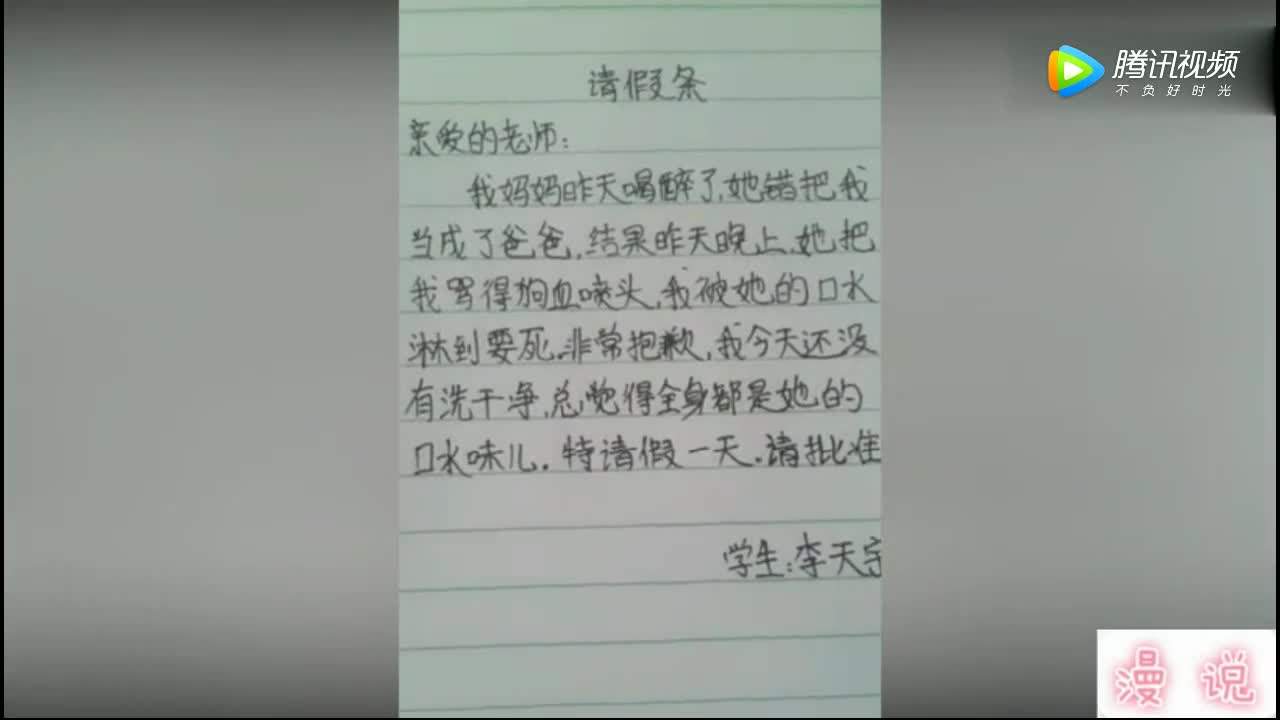 腾讯视频
不负好时光
请假条
亲爱的老师:
我妈妈昨天喝醉了,她错把我
当成了爸爸,结果昨天晚上,她把
我骂得狗血喷头,我被她的口水
淋到要死.非常抱歉,我今天还没
有洗干净,总觉得全身都是她的
口水味儿.特请假一天.请批准
学生:李天宇
漫说